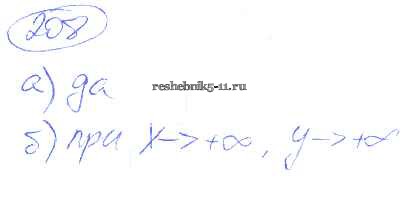 208
а) да
reshebnik5-11.ru
б) при x -> +∞, y -> +∞